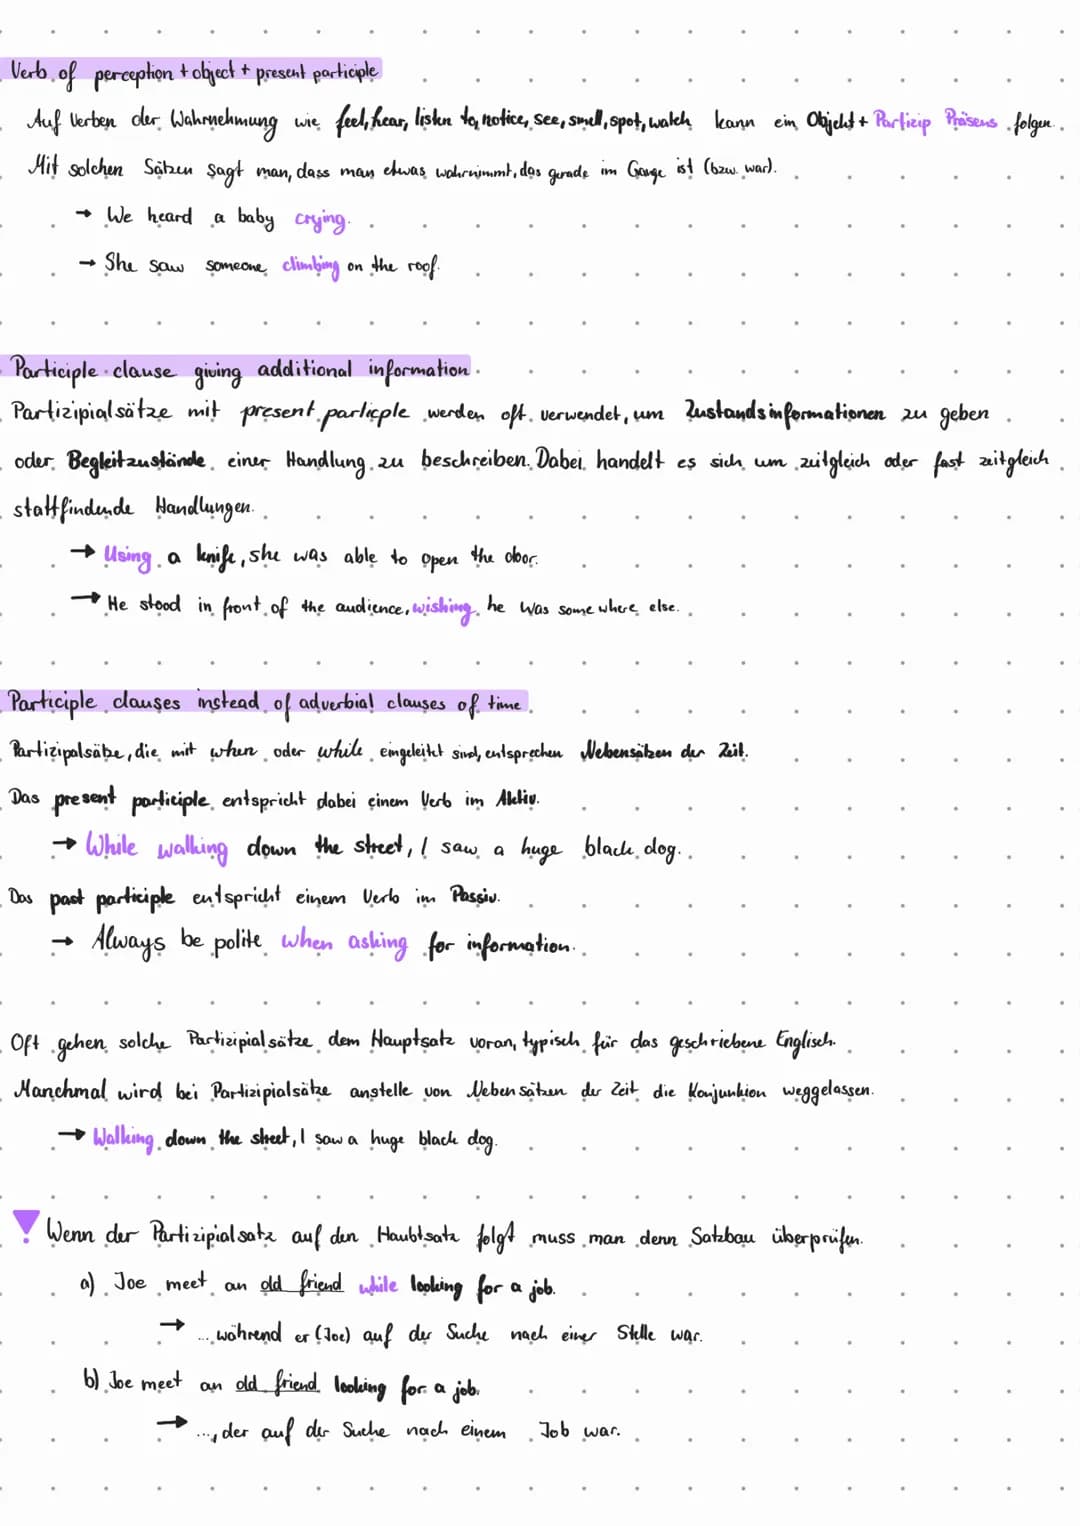 Verb of perception + object + present participle
Auf Verben der Wahrnehmung wie feel, hear, listen to, notice, see, smell, spot, watch kann ein Objekt + Particip Präsens folgen.
Mit solchen Sätzen sagt man, dass man etwas wahrnimmt, das gerade im Gange ist (bzw. war).
→ We heard a baby crying.
→ She saw someone climbing on the roof.
Participle clause giving additional information
Partizipialsätze mit present participle werden oft verwendet, um Zustandsinformationen zu geben
oder Begleitzustände einer Handlung zu beschreiben. Dabei handelt es sich um zeitgleich oder fast zeitgleich
stattfindende Handlungen.
→ Using a knife, she was able to open the door.
→ He stood in front of the audience, wishing he was somewhere else.
Participle clauses instead of adverbial clauses of time
Partizipalsätze, die mit when oder while eingeleitet sind, entsprechen Nebensätzen der Zeit.
Das present participle entspricht dabei einem Verb im Aktiv.
→ While walking down the street, I saw a huge black dog.
Das past participle entspricht einem Verb im Passiv.
→ Always be polite when asking for information.
Oft gehen solche Partizipialsätze dem Hauptsatz voran, typisch für das geschriebene Englisch.
Manchmal wird bei Partizipialsätze anstelle von Nebensätzen der Zeit die Konjunktion weggelassen.
→ Walking down the street, I saw a huge black dog.
! Wenn der Partizipialsatz auf den Haubtsatz folgt muss man denn Satzbau überprüfen.
a) Joe meet an old friend while looking for a job.
→ ...während er (Joe) auf der Suche nach einer Stelle war.
b) Joe meet an old friend looking for a job.
→ ..., der auf der Suche nach einem Job war.